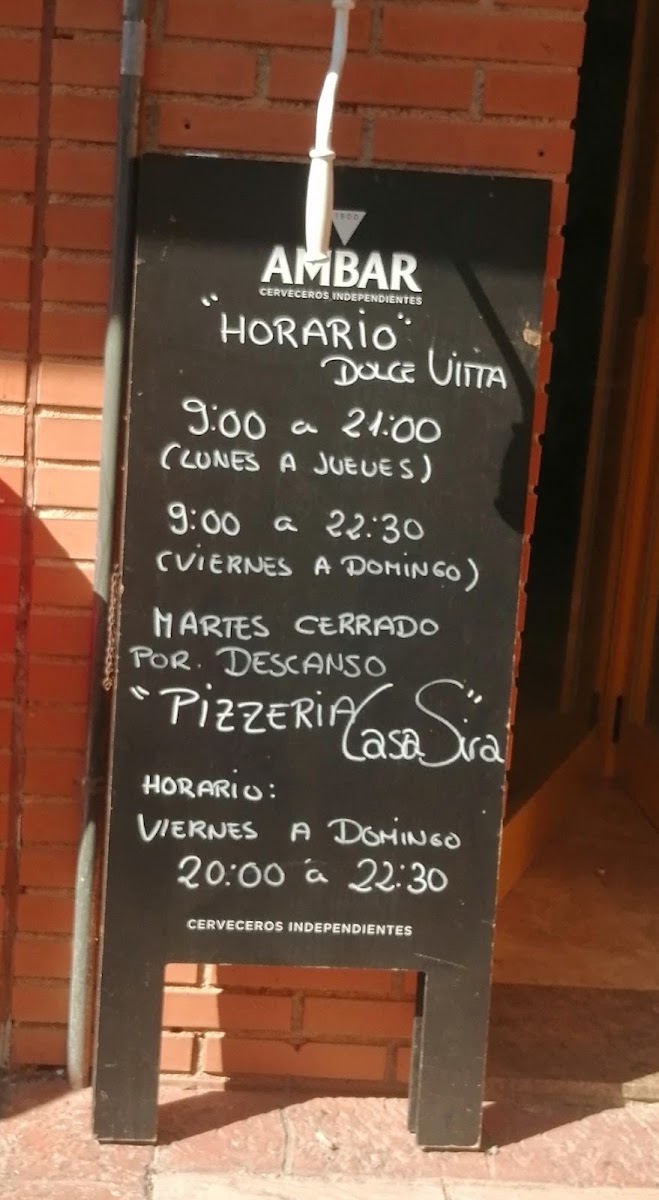 1900
AMBAR
CERVECEROS INDEPENDIENTES
"HORARIO"
DOLCE VITTA
9:00 a 21:00
(LUNES A JUEVES)
9:00 a 22:30
(VIERNES A DOMINGO)
MARTES CERRADO
POR. DESCANSO
"PIZZERIA Casa Sira"
HORARIO:
VIERNES A DOMINGO
20:00 a 22:30
CERVECEROS INDEPENDIENTES